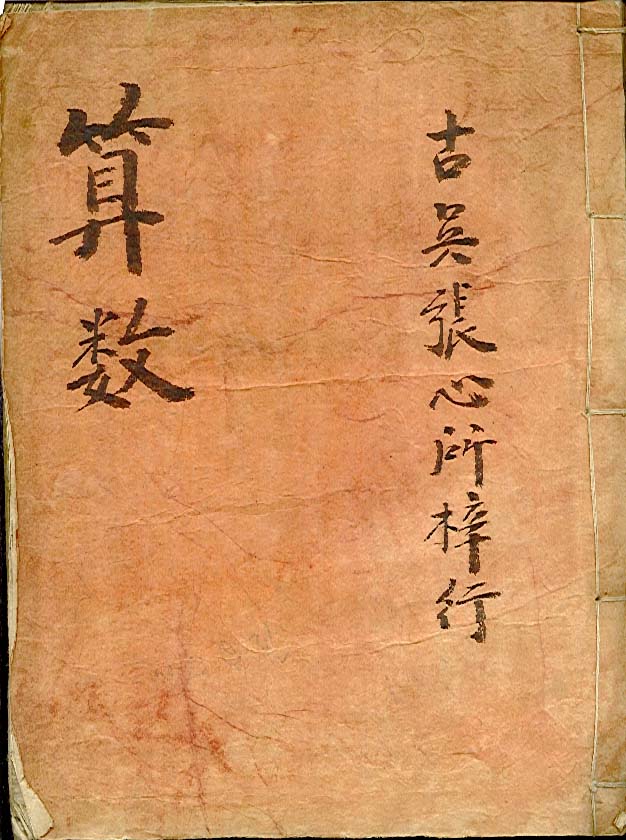 古吳張心所梓行
算数